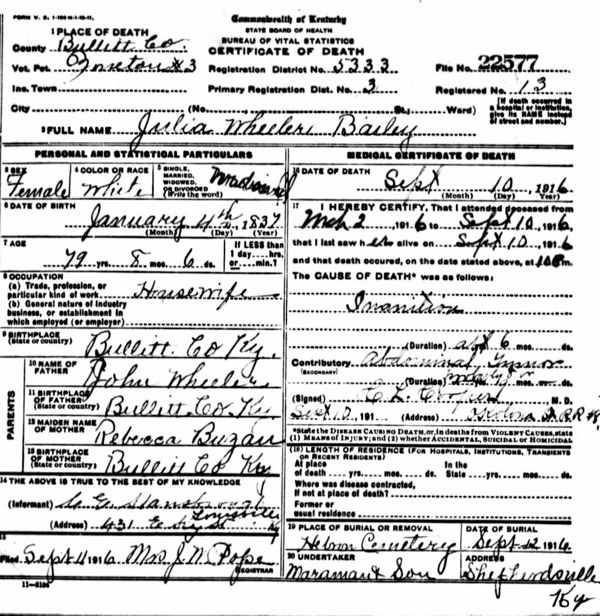 FORM V. S. 1-100 M-1-10-11.
Commonwealth of Kentucky
STATE BOARD OF HEALTH
BUREAU OF VITAL STATISTICS
CERTIFICATE OF DEATH
1 PLACE OF DEATH
County Bullitt Co.
Vot. Pct. Zoneton #3
Inc. Town
City (No. St.; Ward)
Registration District No. 5333
Primary Registration Dist. No. 3
File No. 22577
Registered No. 13
[If death occurred in a hospital or institution, give its NAME instead of street and number.]
2 FULL NAME Julia Wheeler Bailey
PERSONAL AND STATISTICAL PARTICULARS
3 SEX Female
4 COLOR OR RACE White
5 SINGLE, MARRIED, WIDOWED, OR DIVORCED (Write the word)
6 DATE OF BIRTH
January 4th, 1837
(Month) (Day) (Year)
7 AGE
79 yrs. 8 mos. 6 ds.
If LESS than 1 day....hrs. or....min.?
8 OCCUPATION
(a) Trade, profession, or particular kind of work Housewife
(b) General nature of industry business, or establishment in which employed (or employer)
9 BIRTHPLACE (State or country) Bullitt Co Ky.
PARENTS
10 NAME OF FATHER John Wheeler
11 BIRTHPLACE OF FATHER (State or country) Bullitt Co Ky
12 MAIDEN NAME OF MOTHER Rebecca Buzan
13 BIRTHPLACE OF MOTHER (State or country) Bullitt Co Ky
14 THE ABOVE IS TRUE TO THE BEST OF MY KNOWLEDGE
(Informant)
Louisville
(Address) 431 E Ky
15
Filed Sept 1916 Mrs J. M. Pope
REGISTRAR
11-3186
MEDICAL CERTIFICATE OF DEATH
16 DATE OF DEATH
Sept 10, 1916
(Month) (Day) (Year)
17 I HEREBY CERTIFY, That I attended deceased from
Mch 2, 1916 to Sept 10, 1916
that I last saw her alive on Sept 10, 1916
and that death occured, on the date stated above, at m.
The CAUSE OF DEATH* was as follows:
Inanition
(Duration) abt 6 mos. ds.
Contributory Abdominal Tumor
(SECONDARY)
(Duration) mos. ds.
(Signed) M. D.
Sept 191 (Address)
*State the DISEASE CAUSING DEATH, or, in deaths from VIOLENT CAUSES, state (1) MEANS OF INJURY; and (2) whether ACCIDENTAL, SUICIDAL or HOMICIDAL
(18) LENGTH OF RESIDENCE (FOR HOSPITALS, INSTITUTIONS, TRANSIENTS OR RECENT RESIDENTS.)
At place of death yrs. mos. ds. In the State yrs. mos. ds.
Where was disease contracted, if not at place of death?
Former or usual residence
19 PLACE OF BURIAL OR REMOVAL
Hebron Cemetery
DATE OF BURIAL
Sept 12 1916
20 UNDERTAKER
Maraman & Son
ADDRESS
Shepherdsville
Ky